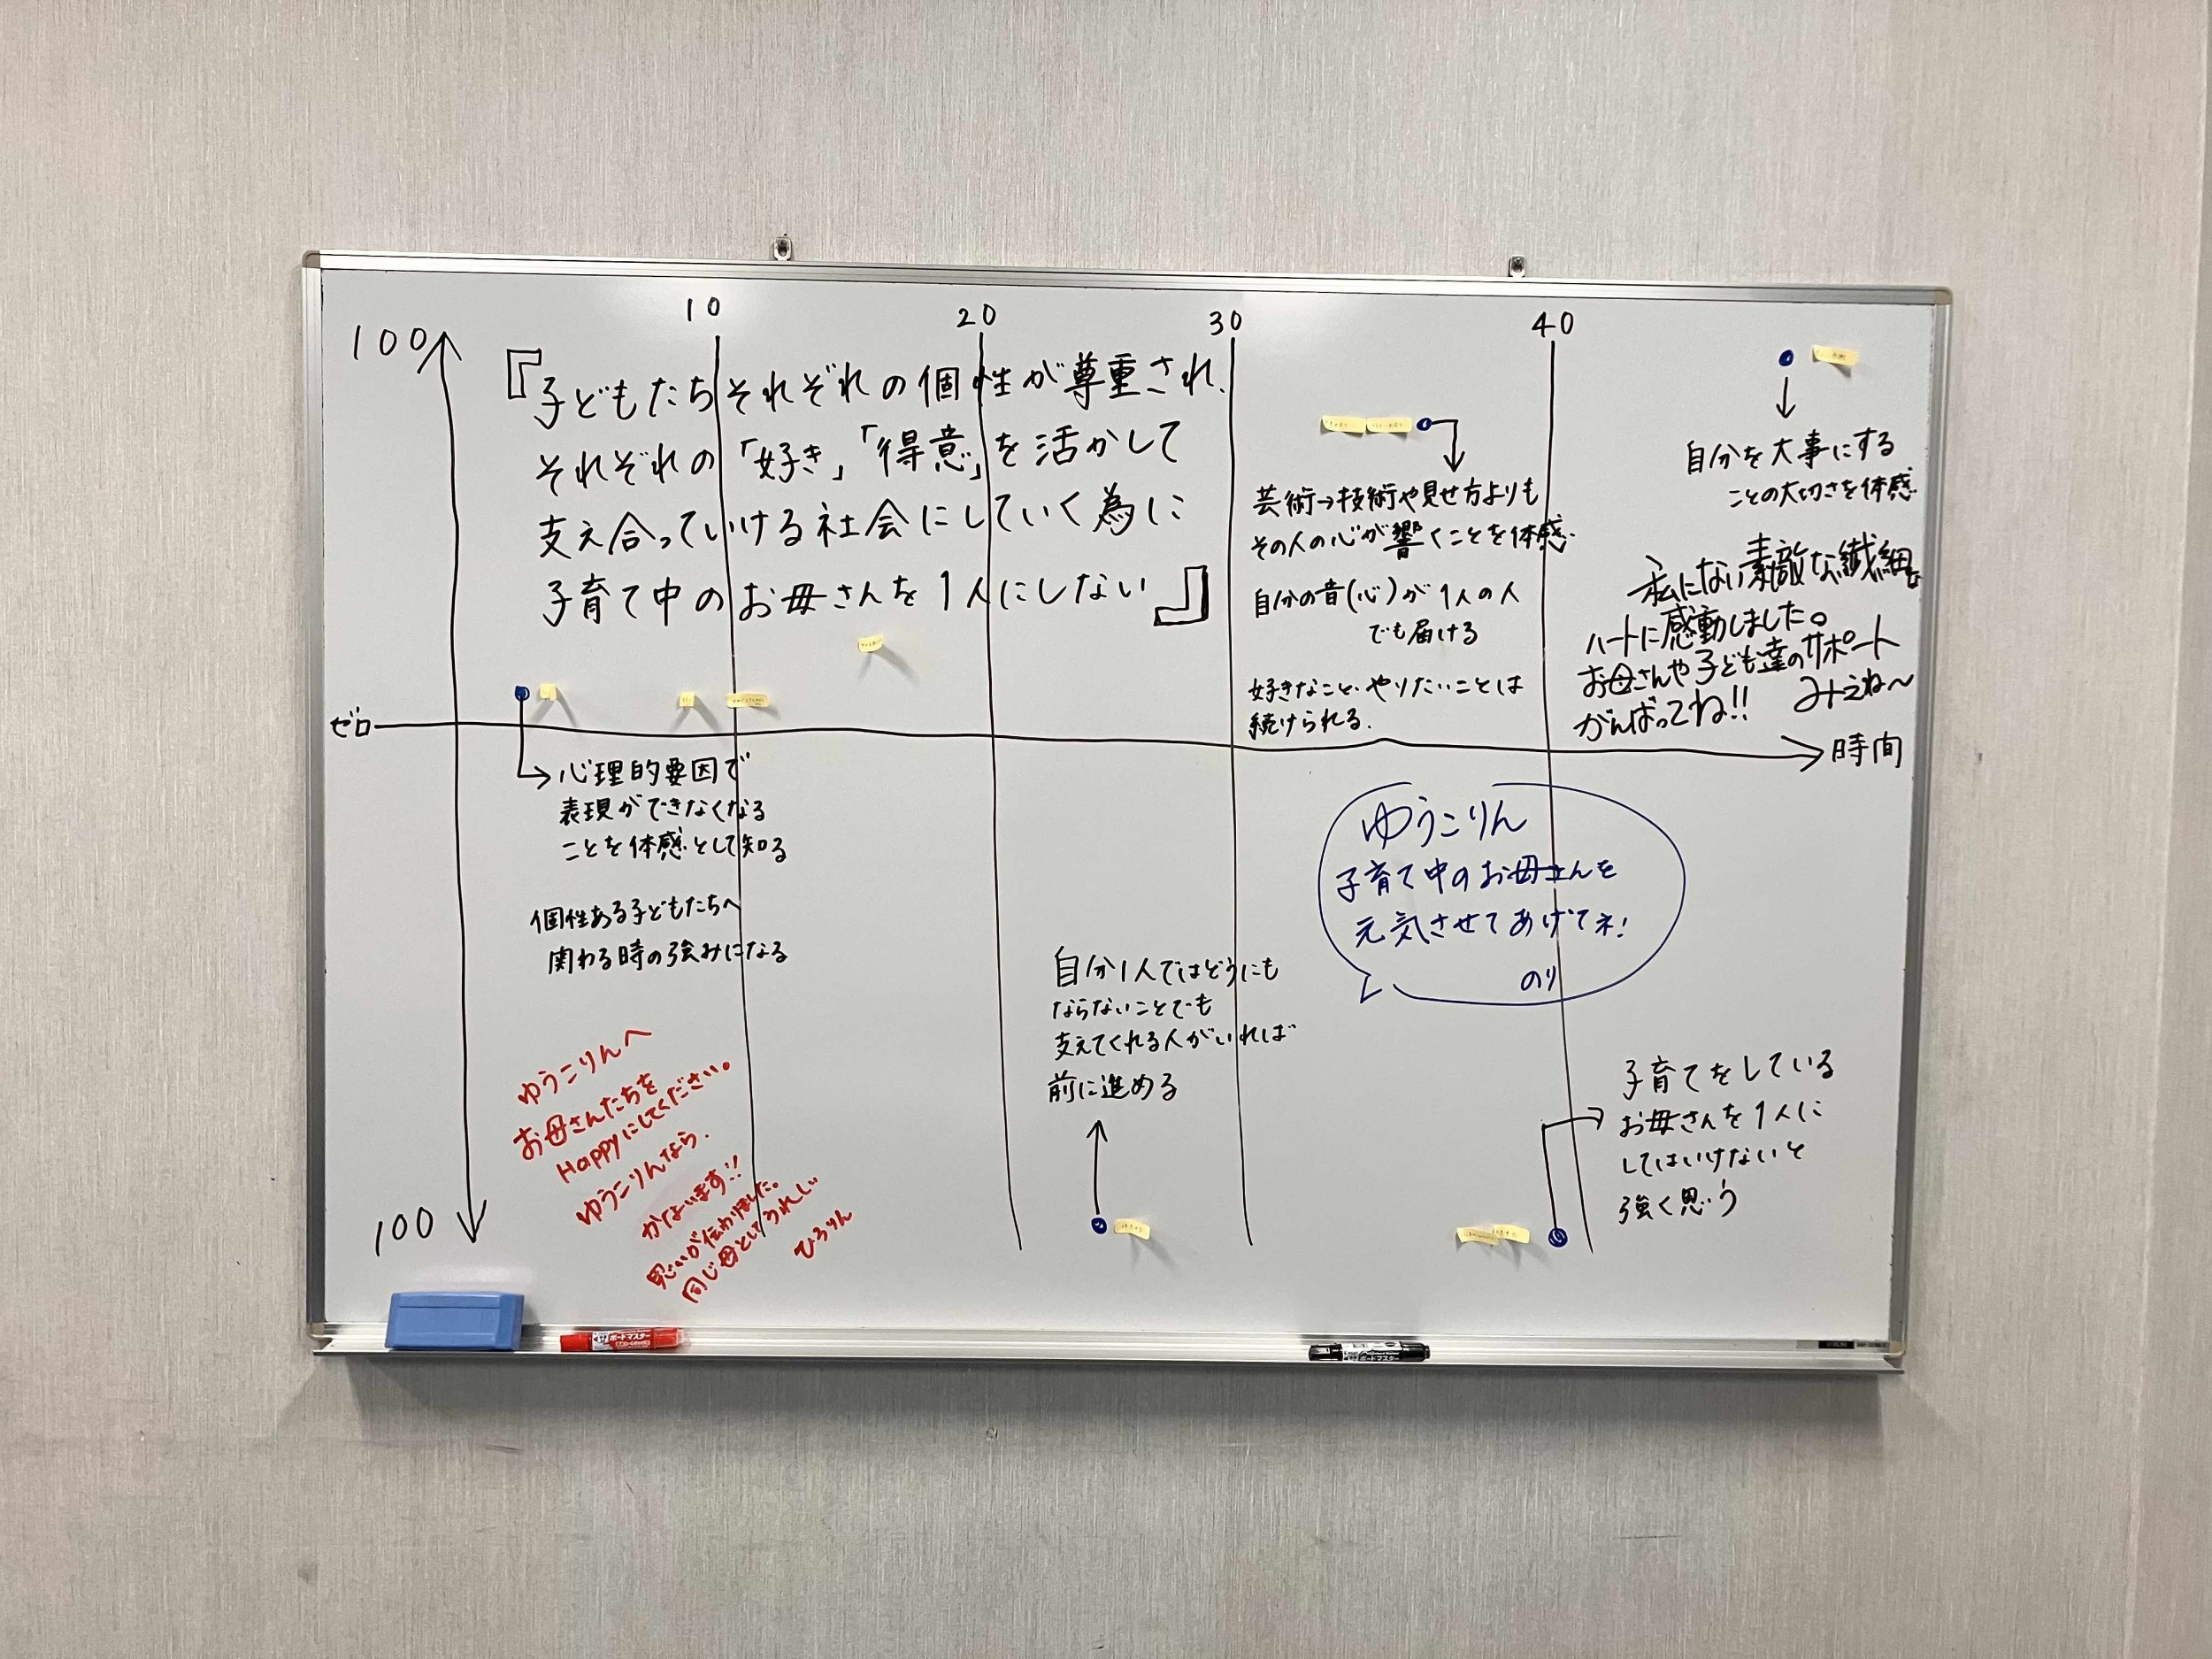 10
20
30
40
100
『子どもたちそれぞれの個性が尊重され、
それぞれの「好き」「得意」を活かして
支え合っていける社会にしていく為に
子育て中のお母さんを1人にしない』
芸術→技術や見せ方よりも
その人の心が響くことを体感
自分の音(心)が1人の人
でも届ける
好きなこと・やりたいことは
続けられる.
自分を大事にする
ことの大切さを体感
私にない素敵な繊細な
ハートに感動しました。
お母さんや子ども達のサポート
がんばってね!!
みえね〜
ゼロ
時間
心理的要因で
表現ができなくなる
ことを体感として知る
個性ある子どもたちへ
関わる時の強みになる
ゆうこりん
子育て中のお母さんを
元気させてあげてネ!
のり
自分1人ではどうにも
ならないことでも
支えてくれる人がいれば
前に進める
子育てをしている
お母さんを1人に
してはいけないと
強く思う
ゆうこりんへ
お母さんたちを
Happyにしてください。
ゆうこりんなら、
かないます!!
思いが伝わりました。
同じ母としてうれしい
ひろりん
100
ボードマスター
ボードマスター